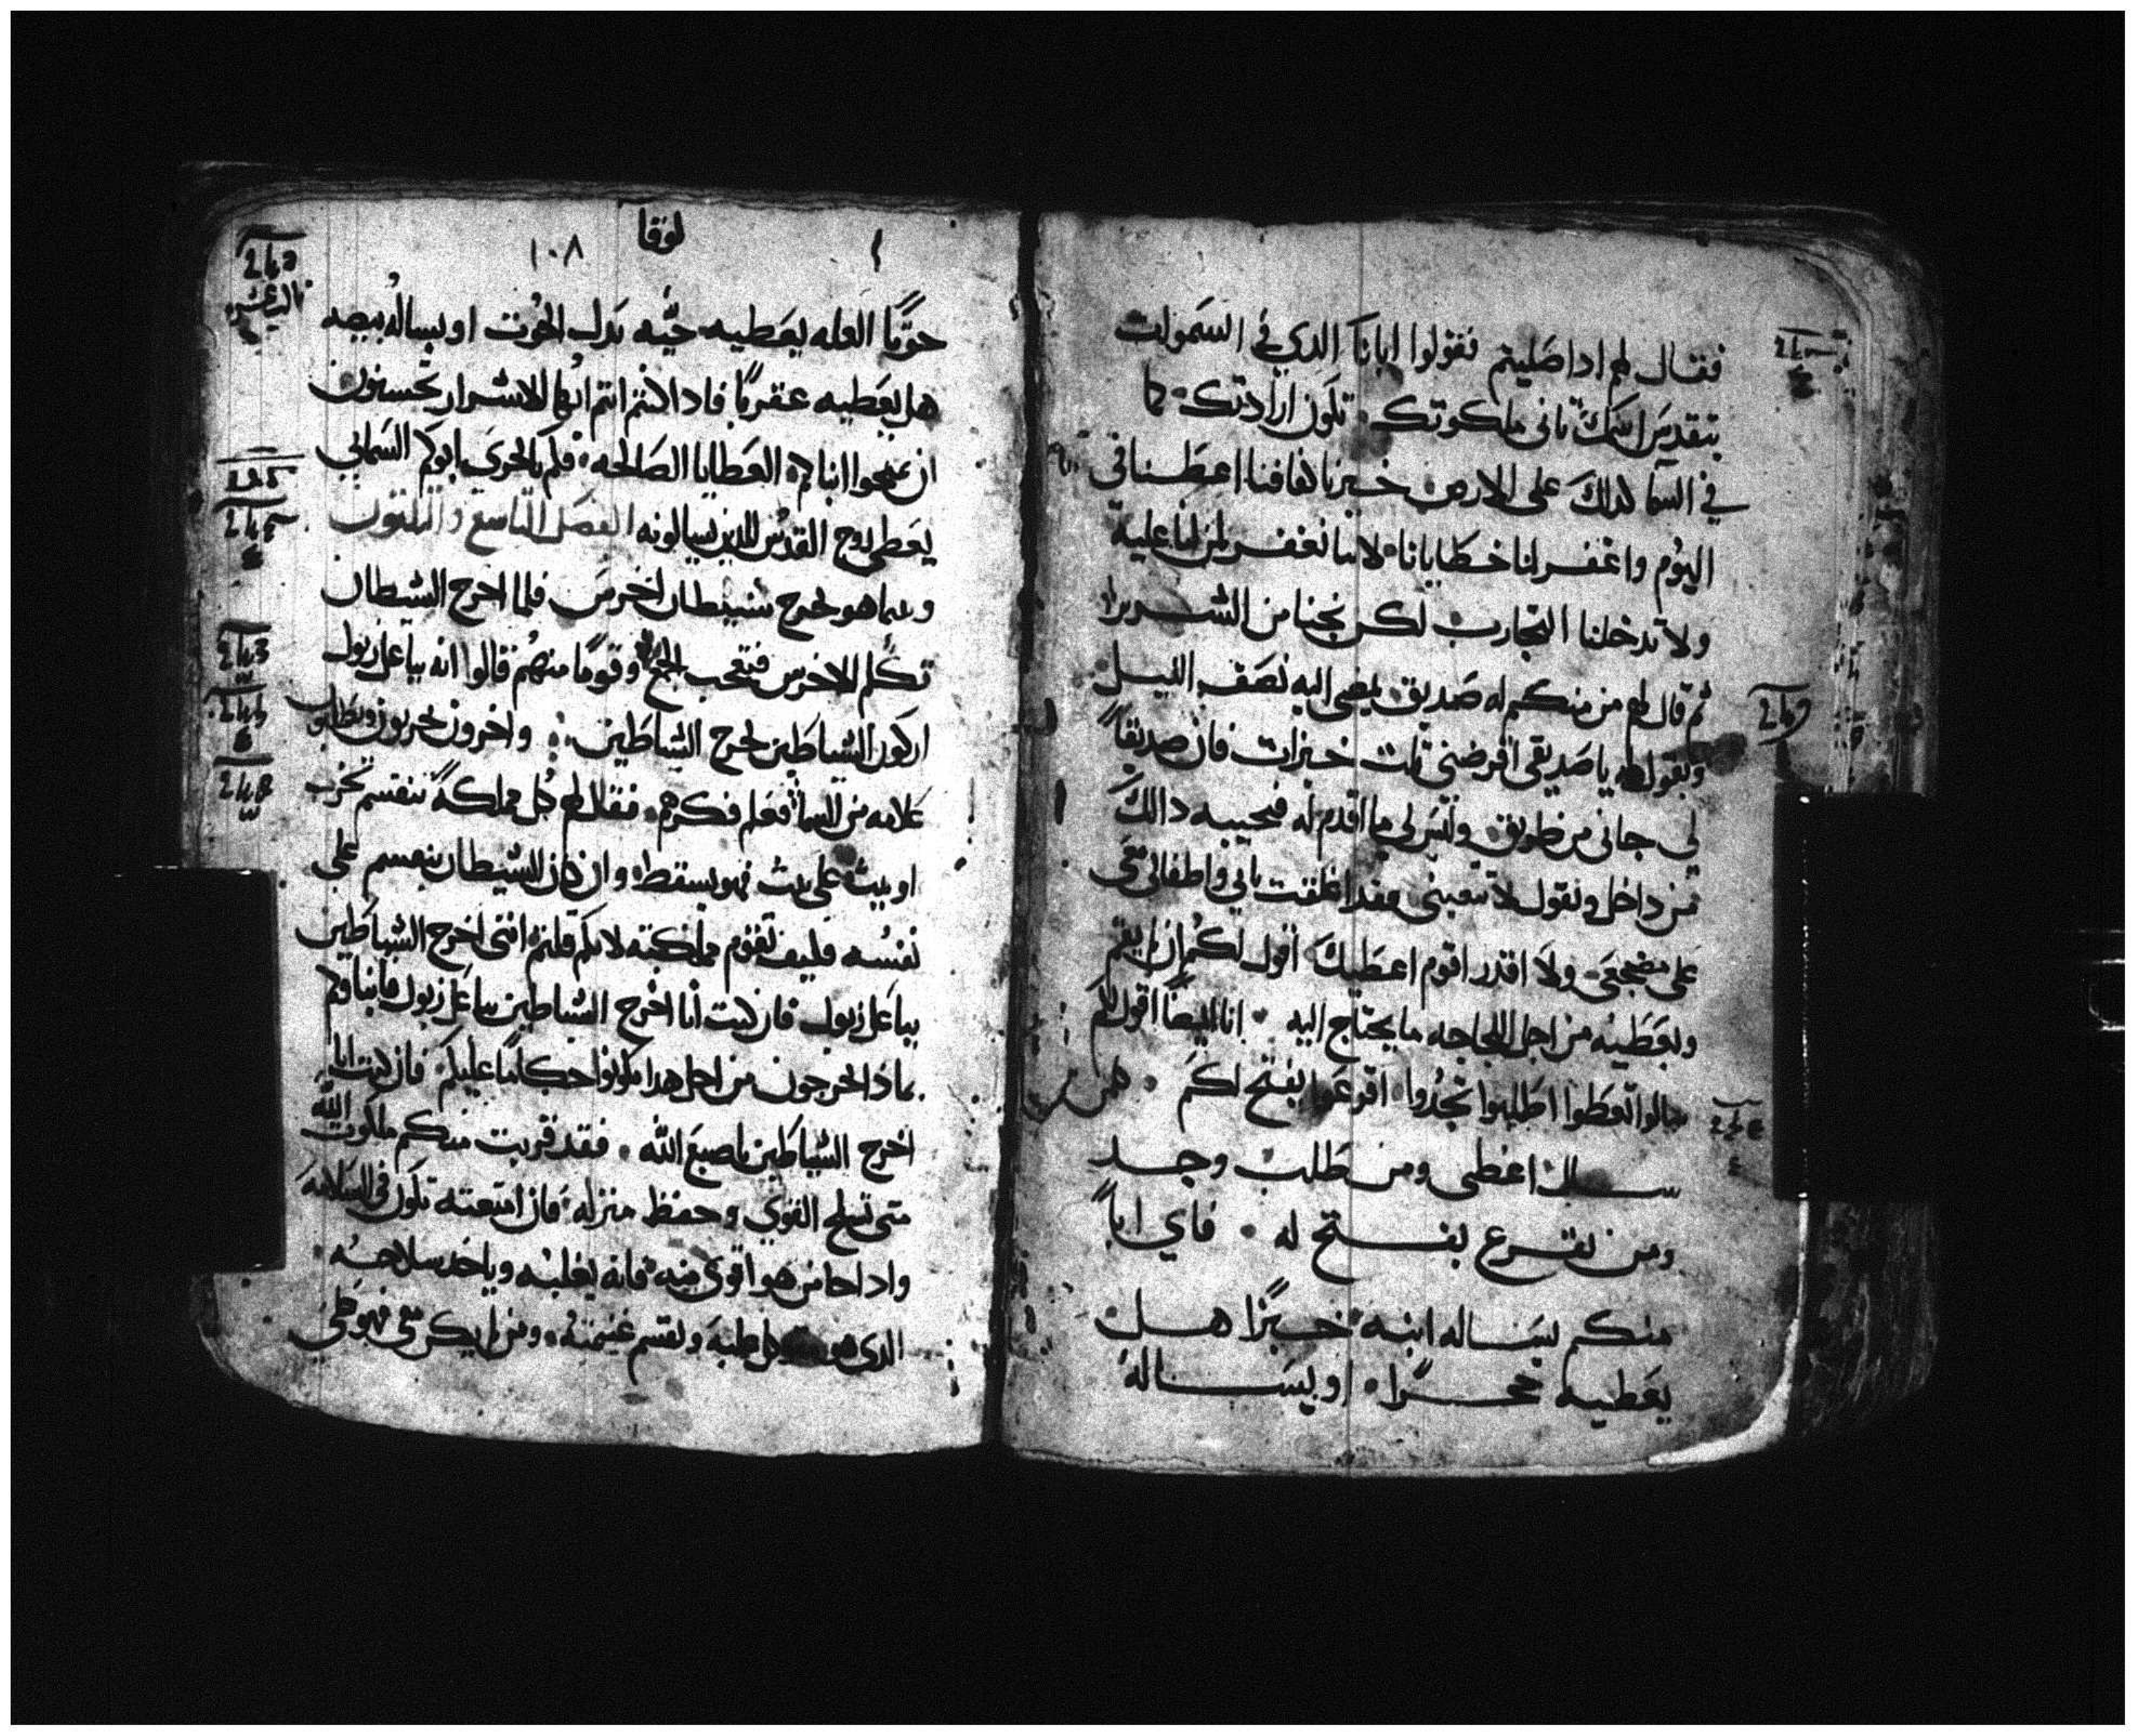 فقال لهم اداصليتم فقولوا ابانا الدي في السموات
يتقدس اسمك تاتي ملكوتك تكون ارادتك كما
في السما كدلك على الارض خبزنا كفافنا اعطنا في
اليوم واغفر لنا خطايانا لاننا نغفر لمن لنا عليه
ولا تدخلنا التجارب لكن نجنا من الشرير
ثم قال لهم من منكم له صديق يمضي اليه نصف الليل
ويقول له يا صديقي اقرضني تلت خبزات فان صديقاً
لي جاني من طريق وليس لي ما اقدم له فيجيبه دالك
من داخل ويقول لا تتعبني فقد اغلقت بابي واطفالي معي
على مضجعي ولا اقدر اقوم اعطيك اقول لكم ان لم يقم
ويعطيه من اجل اللجاجه ما يحتاج اليه انا ايضاً اقول لكم
سالوا تعطوا اطلبوا تجدوا اقرعوا يفتح لكم
سال اعطى ومن طلب وجد
ومن يقرع يفتح له فاي اباً
منكم يساله ابنه خبزًا هل
يعطيه حجرًا او يساله
لوقا
١٠٨
حوتًا العله يعطيه حيّه بدل الحوت او يساله بيضه
هل يعطيه عقربًا فادا كنتم انتم ايها الاشرار تحسنون
ان تمنحوا ابناكم العطايا الصالحه فكم بالحري ابوكم السماي
يعطي روح القدس للدين يسالونه الفصل التاسع والتلتون
وبينما هو يخرج شيطان اخرس فلما اخرج الشيطان
تكلم الاخرس فتعجب الجمع وقومًا منهم قالوا انه بباعلزبول
اركون الشياطين يخرج الشياطين واخرون يجربونه يطلبوا
علامه من السما فعلم فكرهم فقال لهم كل مملكه تنقسم تخرب
او بيت على بيت فهو يسقط وان كان الشيطان ينقسم على
نفسه فكيف تقوم مملكته لانكم قلتم انني اخرج الشياطين
بباعلزبول فان كنت انا اخرج الشياطين بباعلزبول فابناوكم
بمادا يخرجون من اجل هدا يكونوا حكامًا عليكم فان كنت انا
اخرج الشياطين باصبع الله فقد قربت منكم ملكوت الله
متى تسلح القوي وحفظ منزله فان امتعته تكون في السلامه
وادا جا من هو اقوى منه فانه يغلبه وياخد سلاحه
الدي هو متكل عليه ويقسم غنيمته ومن لم يكن معي فهو علي